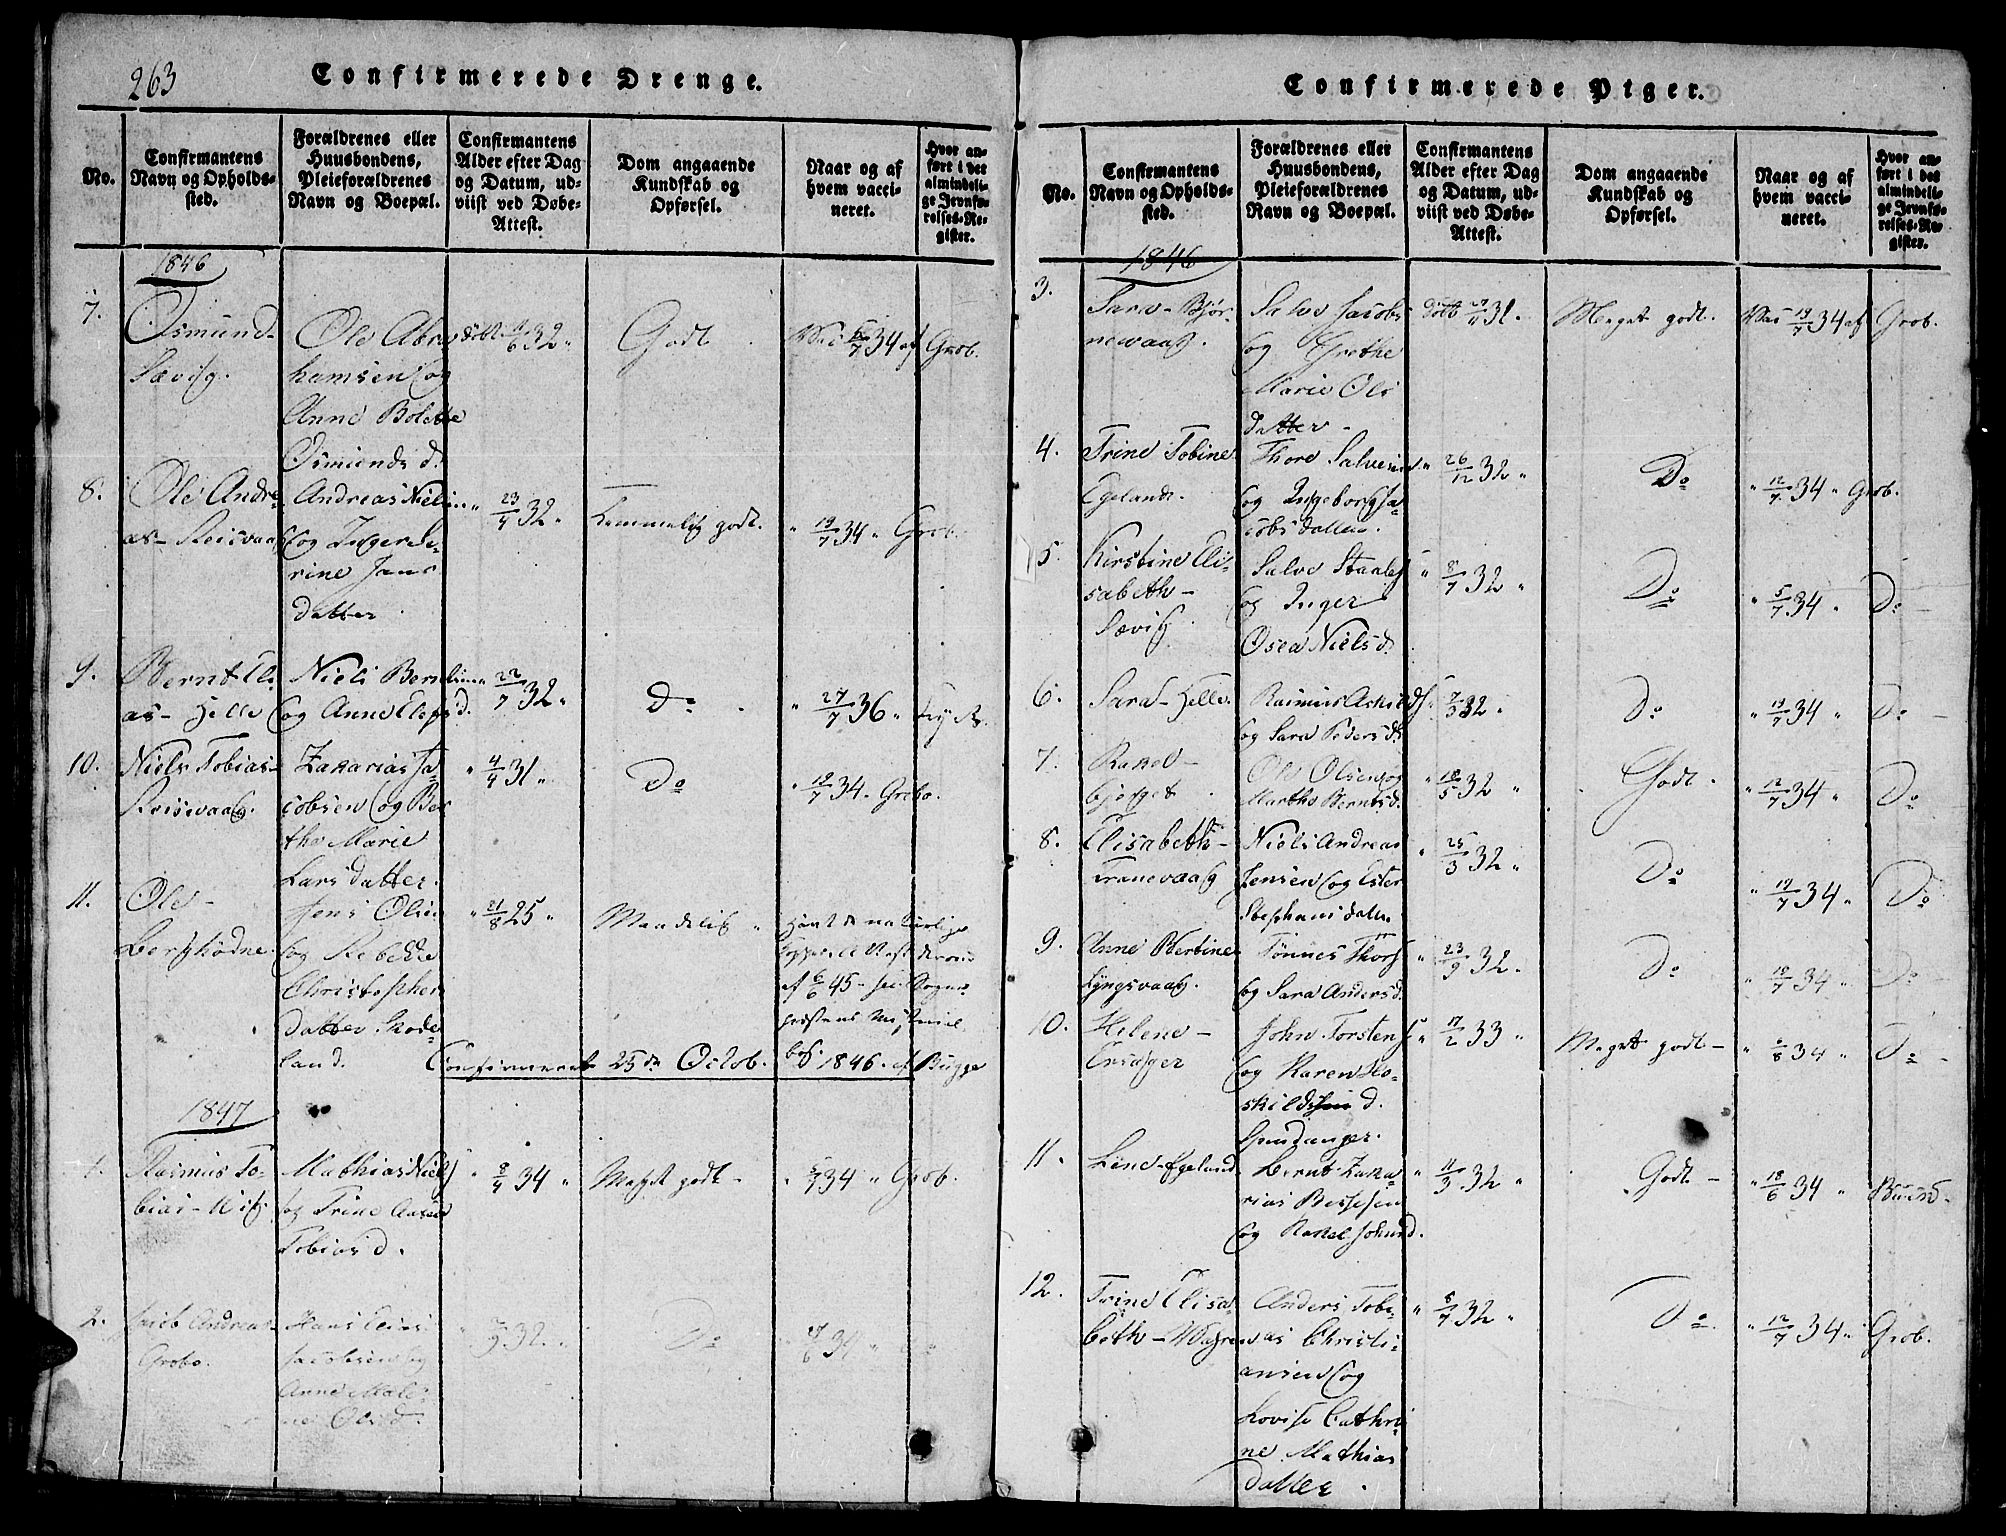 263
Confirmerede Drenge.
No.
Confirmantens
Navn og Opholds-
sted.
Forældrenes eller
Huusbondens,
Pleieforældrenes
Navn og Boepæl.
Confirmantens
Alder efter Dag
og Datum, ud-
viist ved Døbe-
Attest.
Dom angaaende
Kundskab og
Opførsel.
Naar og af
hvem vacci-
neret.
Hvor an-
ført i det
almindeli-
ge Jevnfø-
relses-Re-
gister.
1846
7.
Osmund-
Sævig.
Ole Abra
hamsen og
Anne Bolette
Osmunds d.
32
Godt
6/7 34 af Grob.
8.
Ole Andre-
as-
Andreas Niels
og Inger Se-
rine Jans
datter
23/4 32 "
Temmelig godt.
" 19/7 34 " Grob.
9.
Bernt Eli-
as- Helle
Niels Berntsen
og Anne Elefsd.
22/7 32 "
Do
" 27/7 36 "
10.
Niels Tobias-
Reisevaag.
Zakarias Ja-
cobsen og Ber
the Marie
Larsdatter.
" 4/4 31 "
Do
" 19/7 34.
11.
Ole-
Bergskødne.
Jens Olsen
og Rebekke
Christophers
datter Skode
land.
" 21/8 25 "
Maadelig "
Havt de naturlige
af 6/6 45
Confirmeret 25de Octob. 1846. af Bugge
1847
1.
Rasmus To-
bias-
Mathias Niels
og Trine
Tobias d.
" 8/4 34 "
Meget godt-
" 5/7 34 " Grob.
2.
Jacob Andreas-
Grobo.
Hans Elias
Jacobsen og
Anne Male-
ne Olsd.
32. "
Do
34 "
Confirmerede Piger.
No.
Confirmantens
Navn og Opholds-
sted.
Forældrenes eller
Huusbondens,
Pleieforældrenes
Navn og Boepæl.
Confirmantens
Alder efter Dag
og Datum, ud-
viist ved Døbe-
Attest.
Dom angaaende
Kundskab og
Opførsel.
Naar og af
hvem vacci-
neret.
Hvor an-
ført i det
almindeli-
ge Jevnfø-
relses-Re-
gister.
1846
3.
Sara- Bjør-
nevaag.
Salve Jacobs
og Grethe
Marie Ols
datter-
Døbt 31.
Meget godt.
Vac 19/7 34 af Grob.
4.
Trine Tobine
Egeland.
Thore Salvesen
og Ingeborg Ja-
cobsdatter.
" 26/12 32 "
Do
" 12/7 34 " Grob.
5.
Kirstine Eli-
sabeth-
Sævig.
Salve Staales
og Inger
Osea Nielsd.
" 8/7 32 "
Do
" 5/7 34 " Do
6.
Sara- Helle.
Rasmus Askilds
og Sara Pedersd.
" 7/3 32 "
Do
" 19/7 34 " Do
7.
Rakel-
Ole Olsen og
Marthe Berntsd.
" 18/5 32 "
Godt.
" 12/7 34 " Do
8.
Elisabeth-
Tranevaag
Niels Andreas
Jensen og Ester
Stephansdatter.
" 25/3 32 "
Do
" 19/7 34 " Do
9.
Anne Bertine
Lyngsvaag.
Tønnes Thors
og Sara Andersd.
" 23/9 32 "
Do
" 19/7 34 " Do
10.
Helene-
John Torstens
og Karen Ho-
skilds d.
" 17/2 33 "
Meget godt-
34 " Do
11.
Lene- Egeland
Bernt Zaka-
rias Bertesen
og Rakel Johnsd.
" 11/3 32 "
Godt-
" 18/6 34 "
12.
Trine Elisa-
beth-
Anders Tobi-
as Christi-
ansen og
Lovise Cathri-
ne Mathias
datter.
" 8/7 32 "
Do
" 12/7 34 " Grob.